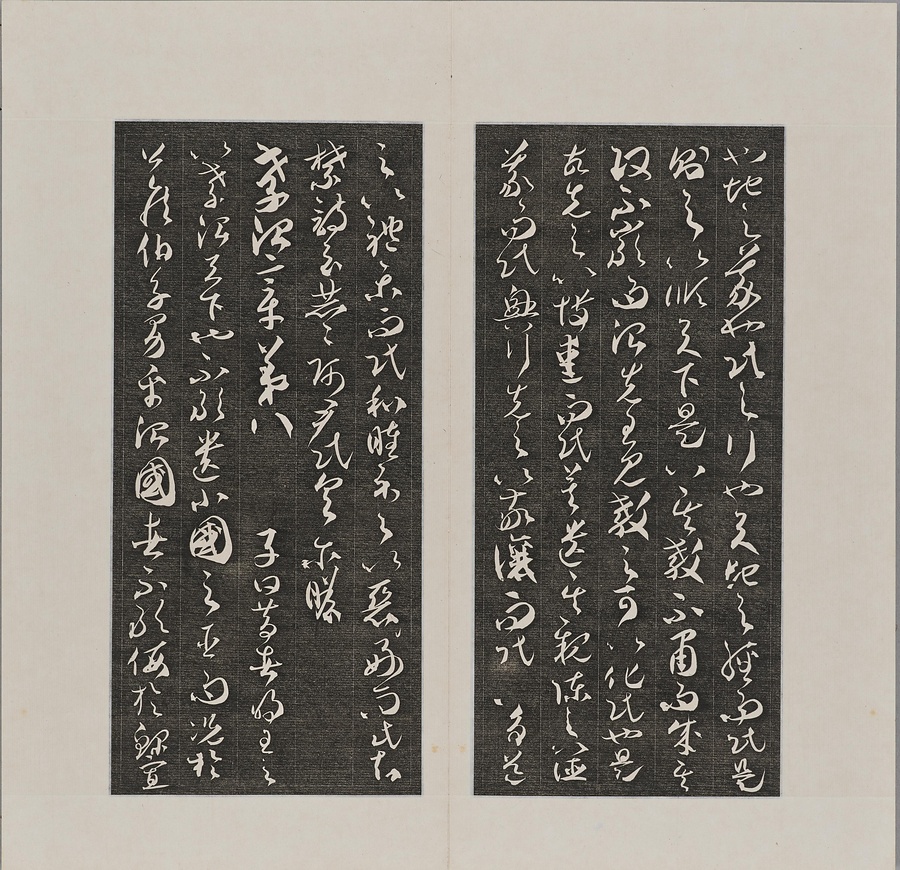 也地之義也民之行也天地之經而民是
則之以順天下是以其教不肅而成其
政不嚴而治先王見教之可以化民也是
故先之以博愛而民莫遺其親陳之以德
義而民興行先之以敬讓而民不爭導
之以禮樂而民和睦示之以惡好而民知
禁詩云赫〻師尹民具爾瞻
孝治章第八 子曰昔者明王之
以孝治天下也不敢遺小國之臣而況於
公侯伯子男乎治國者不敢侮於鰥寡